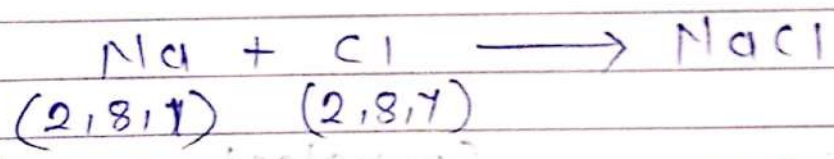 Na + Cl ⟶ NaCl
(2,8,1) (2,8,7)